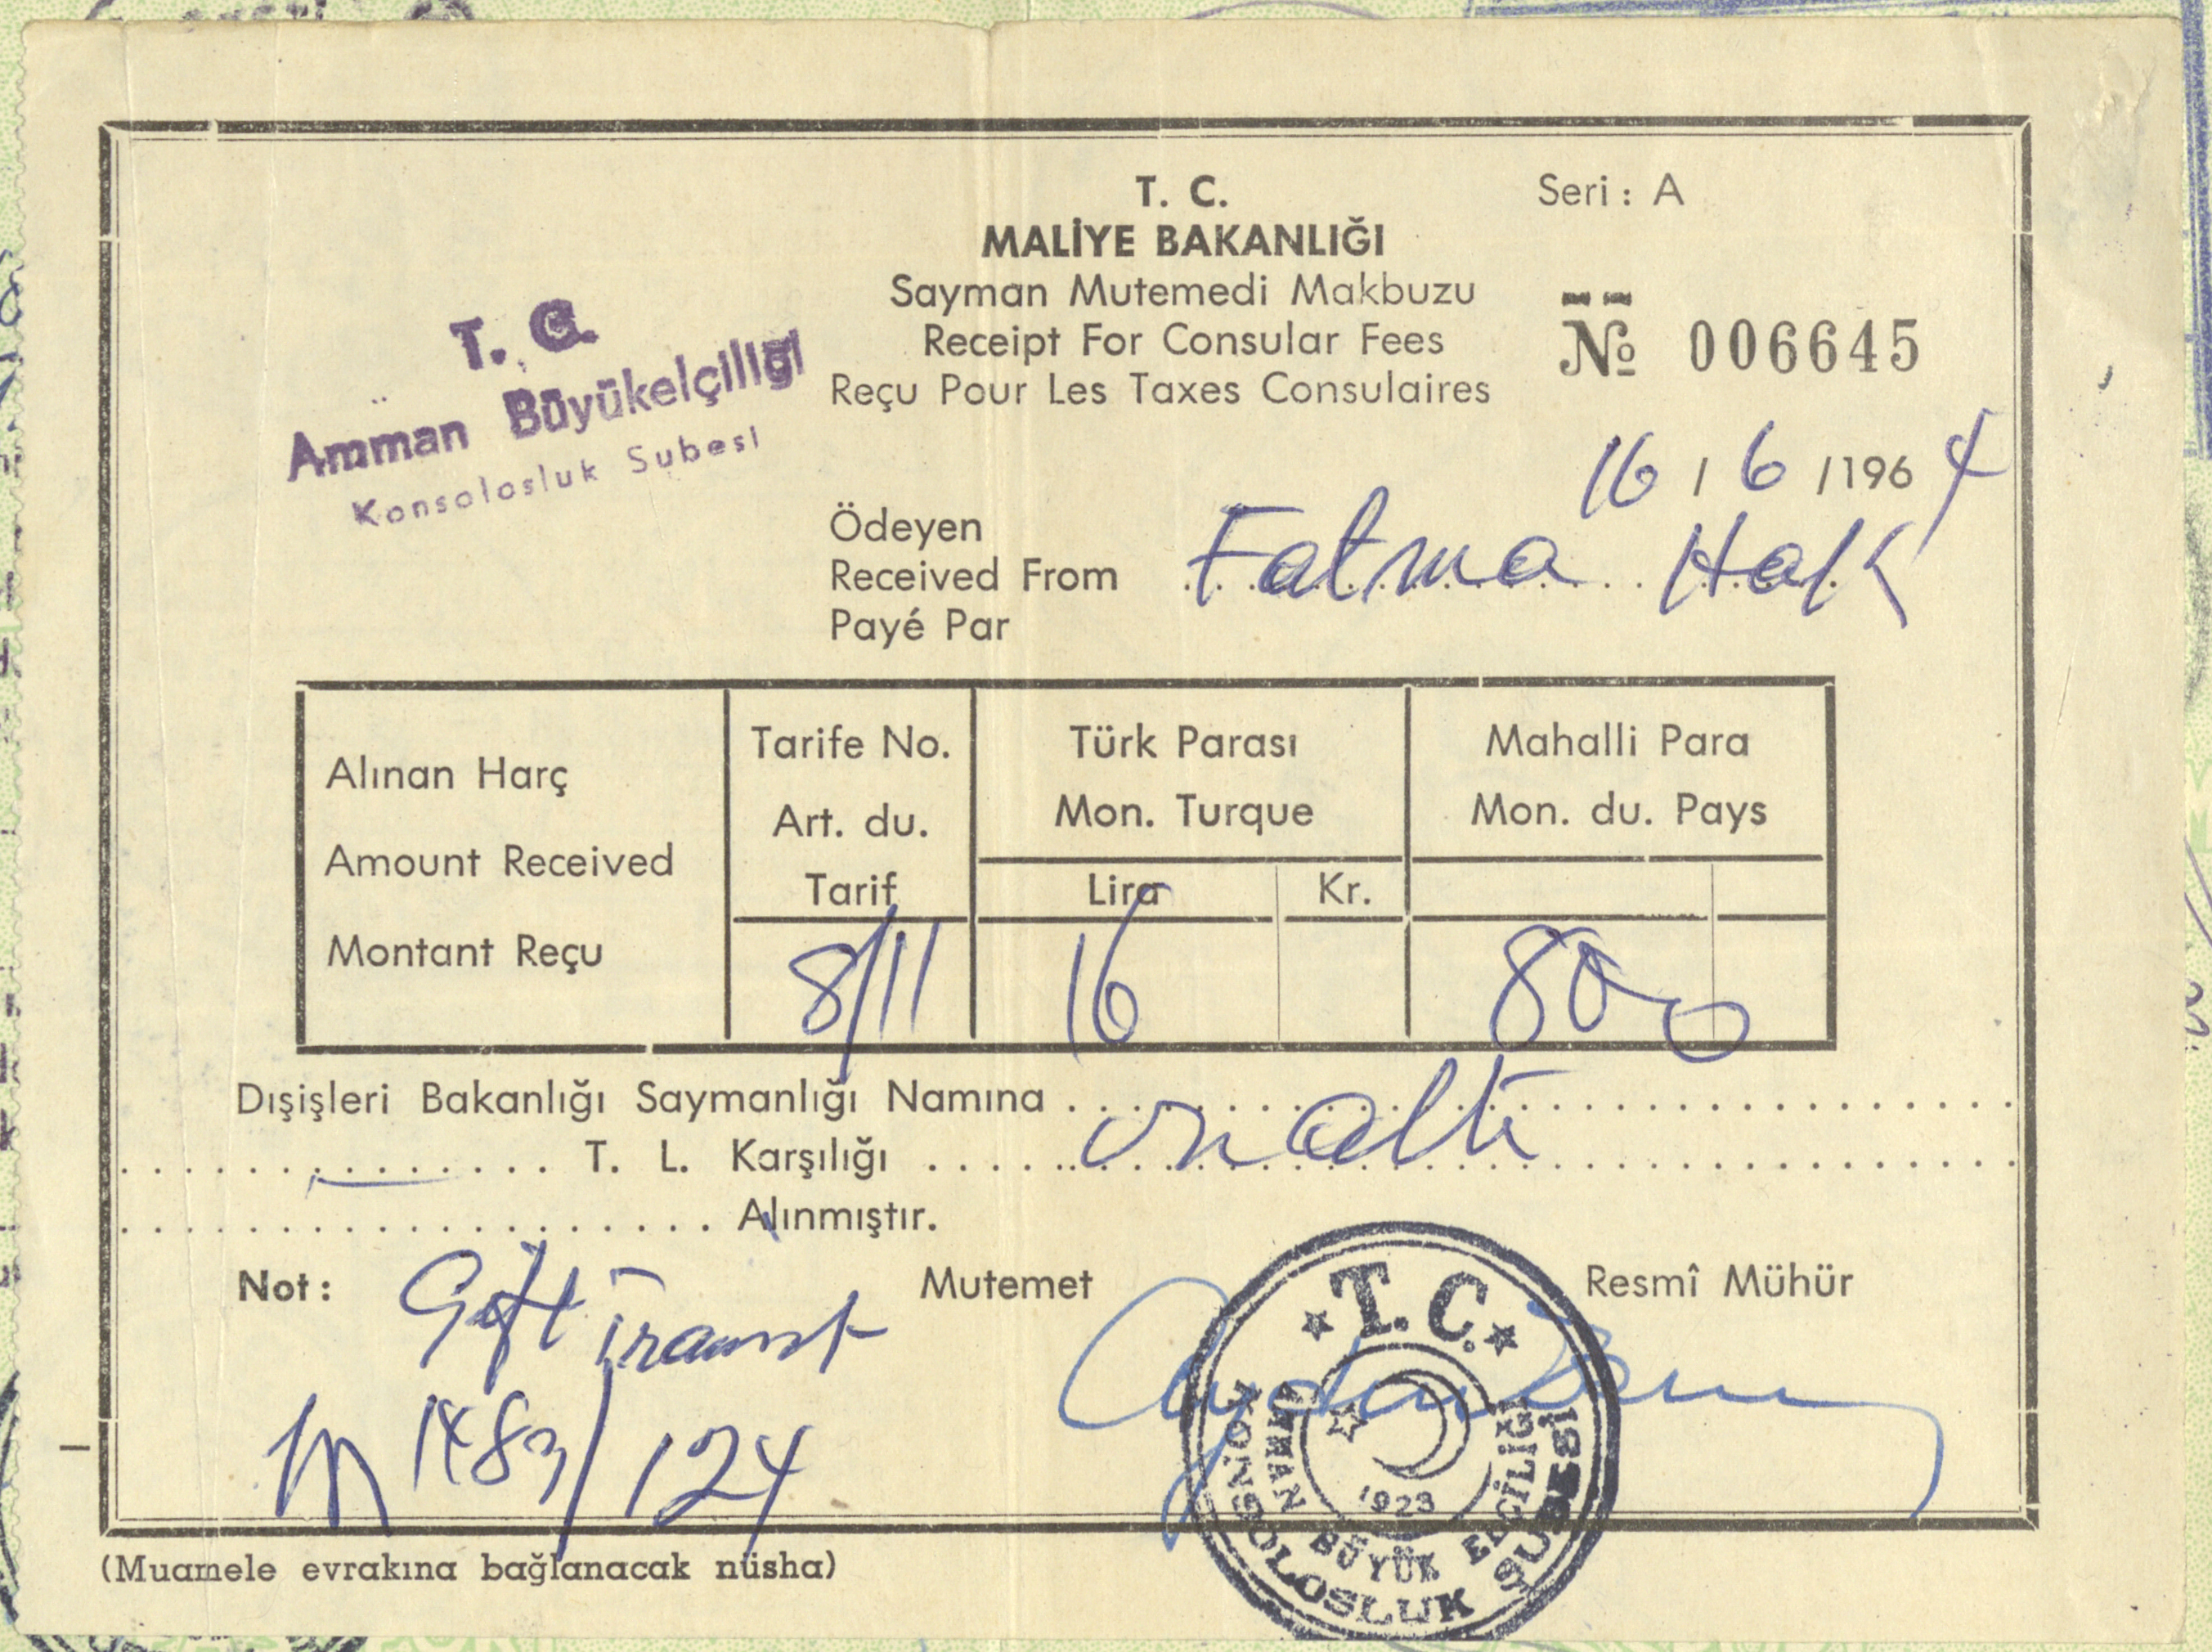 T. C.
MALİYE BAKANLIĞI
Sayman Mutemedi Makbuzu
Receipt For Consular Fees
Reçu Pour Les Taxes Consulaires
Seri : A
№ 006645
T. C.
Amman Büyükelçiliği
Konsolosluk Şubesi
16 / 6 / 1964
Ödeyen
Received From Fatma Hak
Payé Par
Alınan Harç
Amount Received
Montant Reçu
Tarife No.
Art. du.
Tarif
8/11
Türk Parası
Mon. Turque
Lira Kr.
16
Mahalli Para
Mon. du. Pays
800
Dışişleri Bakanlığı Saymanlığı Namına
T. L. Karşılığı onaltı
Alınmıştır.
Not : Çift transit
1483/124
Mutemet
Resmî Mühür
T. C.
1923
AMMAN BÜYÜK ELÇİLİĞİ
KONSOLOSLUK ŞUBESİ
(Muamele evrakına bağlanacak nüsha)